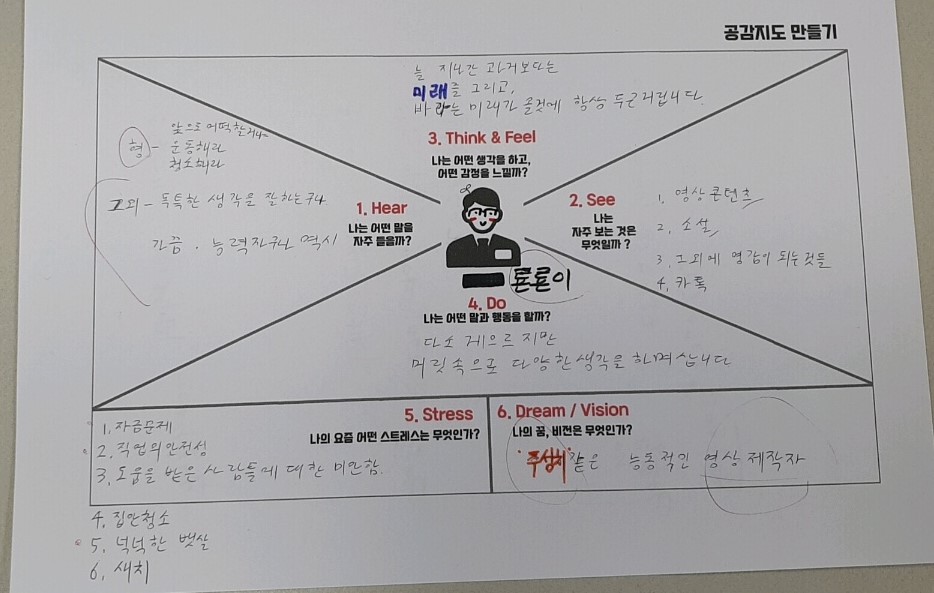 공감지도 만들기
늘 지나간 과거보다는
미래를 그리고,
바라는 미래가 올것에 항상 두근거립니다.
3. Think & Feel
나는 어떤 생각을 하고,
어떤 감정을 느낄까?
형 - 앞으로 어떡할거냐
운동해라
청소해라
그외 - 독특한 생각을 잘하는구나
가끔. 능력자구나 역시
1. Hear
나는 어떤 말을
자주 듣을까?
2. See
나는
자주 보는 것은
무엇일까 ?
1. 영상콘텐츠
2. 소설
3. 그외에 영감이 되는것들
4. 카톡
튼튼이
4. Do
나는 어떤 말과 행동을 할까?
다소 게으르지만
머릿속으로 다양한생각을 하며삽니다
5. Stress
나의 요즘 어떤 스트레스는 무엇인가?
1. 자금문제
2. 직업의안전성
3. 도움을 받은 사람들에 대한 미안함.
4. 집안청소
5. 넉넉한 뱃살
6. 새치
6. Dream / Vision
나의 꿈, 비전은 무엇인가?
"주성치"같은 능동적인 영상제작자